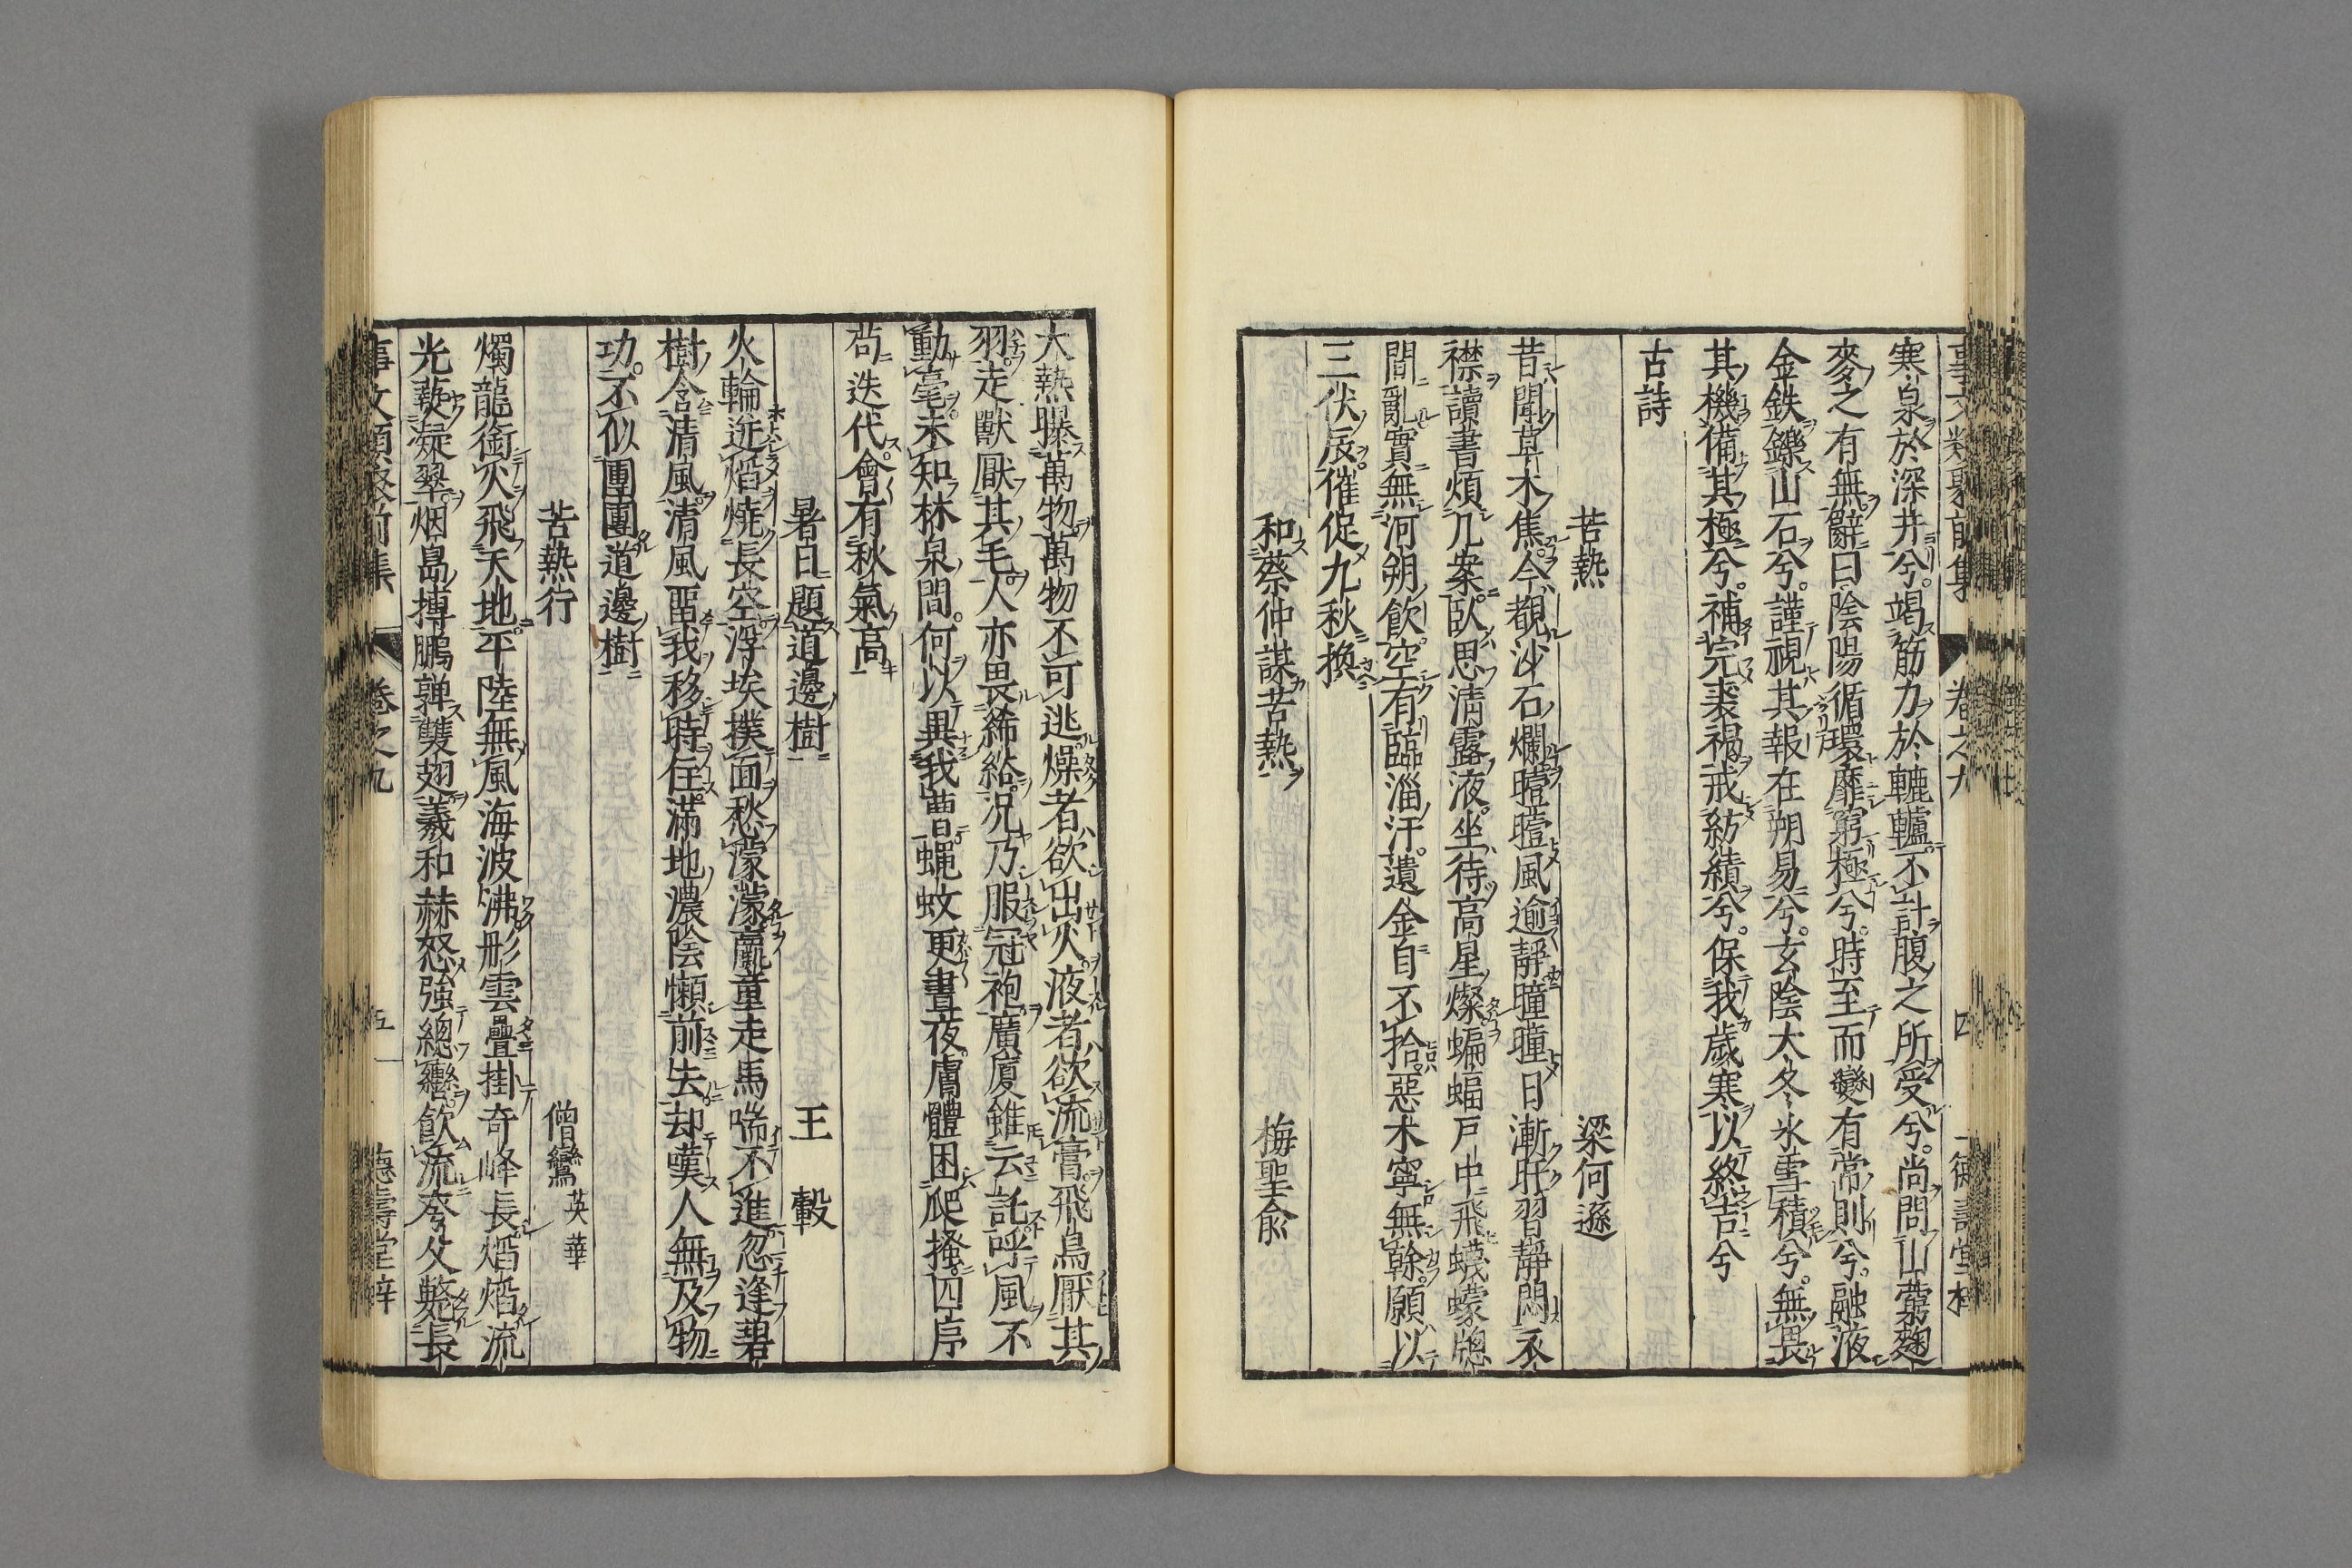 寒泉於深井兮竭筋力於轆轤不計腹之所受兮尚問山藭麴
麥之有無辭曰陰陽循環靡窮極兮時至而變有常則兮融液
金鉄鑠山石兮謹視其報在朔易兮玄陰大冬氷雪積兮無畏
其機備其極兮補完裘褐戒紡績兮保我歲寒以終吉兮
古詩
苦熱 梁何遜
昔聞草木焦今覩沙石爛曀曀風逾靜曈曈日漸旰習靜悶衣
襟讀書煩几案臥思清露液坐待高星燦蝙蝠戸中飛蠛蠓牎
間亂實無河朔飲空有臨淄汗遺金自不拾惡木寧無榦願以
三伏辰催促九秋換
和蔡仲謀苦熱 梅聖兪
大熱曝萬物萬物不可逃燥者欲出火液者欲流膏飛鳥厭其
羽走獸厭其毛人亦畏絺綌況乃服冠袍廣廈雖云託呼風不
動毫未知林泉間何以異我曹蝿蚊更晝夜膚體困爬搔四序
苟迭代會有秋氣高
暑日題道邊樹 王轂
火輪迸焰燒長空浮埃撲面愁濛濛羸童走馬喘不進忽逢碧
樹含清風清風畱我移時住滿地濃陰懶前去却嘆人無及物
功不似團團道邊樹
苦熱行 僧鸞 英華
燭龍銜火飛天地平陸無風海波沸彤雲疊掛奇峰長焰焰流
光爇凝翠烟島摶鵬亸雙翅羲和赫怒強總轡飲流夸父斃長
事文類聚前集 卷之九 五 德壽堂梓